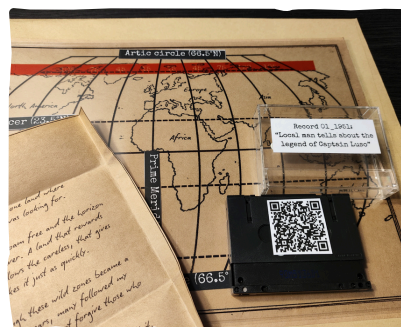 Artic circle (66.5°N)
North America
Europe
Africa
cer (23.5°N
Prime Merid
(66.5°
Record 01_1961:
"Local man tells about the
legend of Captain Luso"
land where
was looking for.
free and the horizon
A land that rewards
the careless, that gives
it just as quickly.
these wild zones became a
many followed my
forgive those who